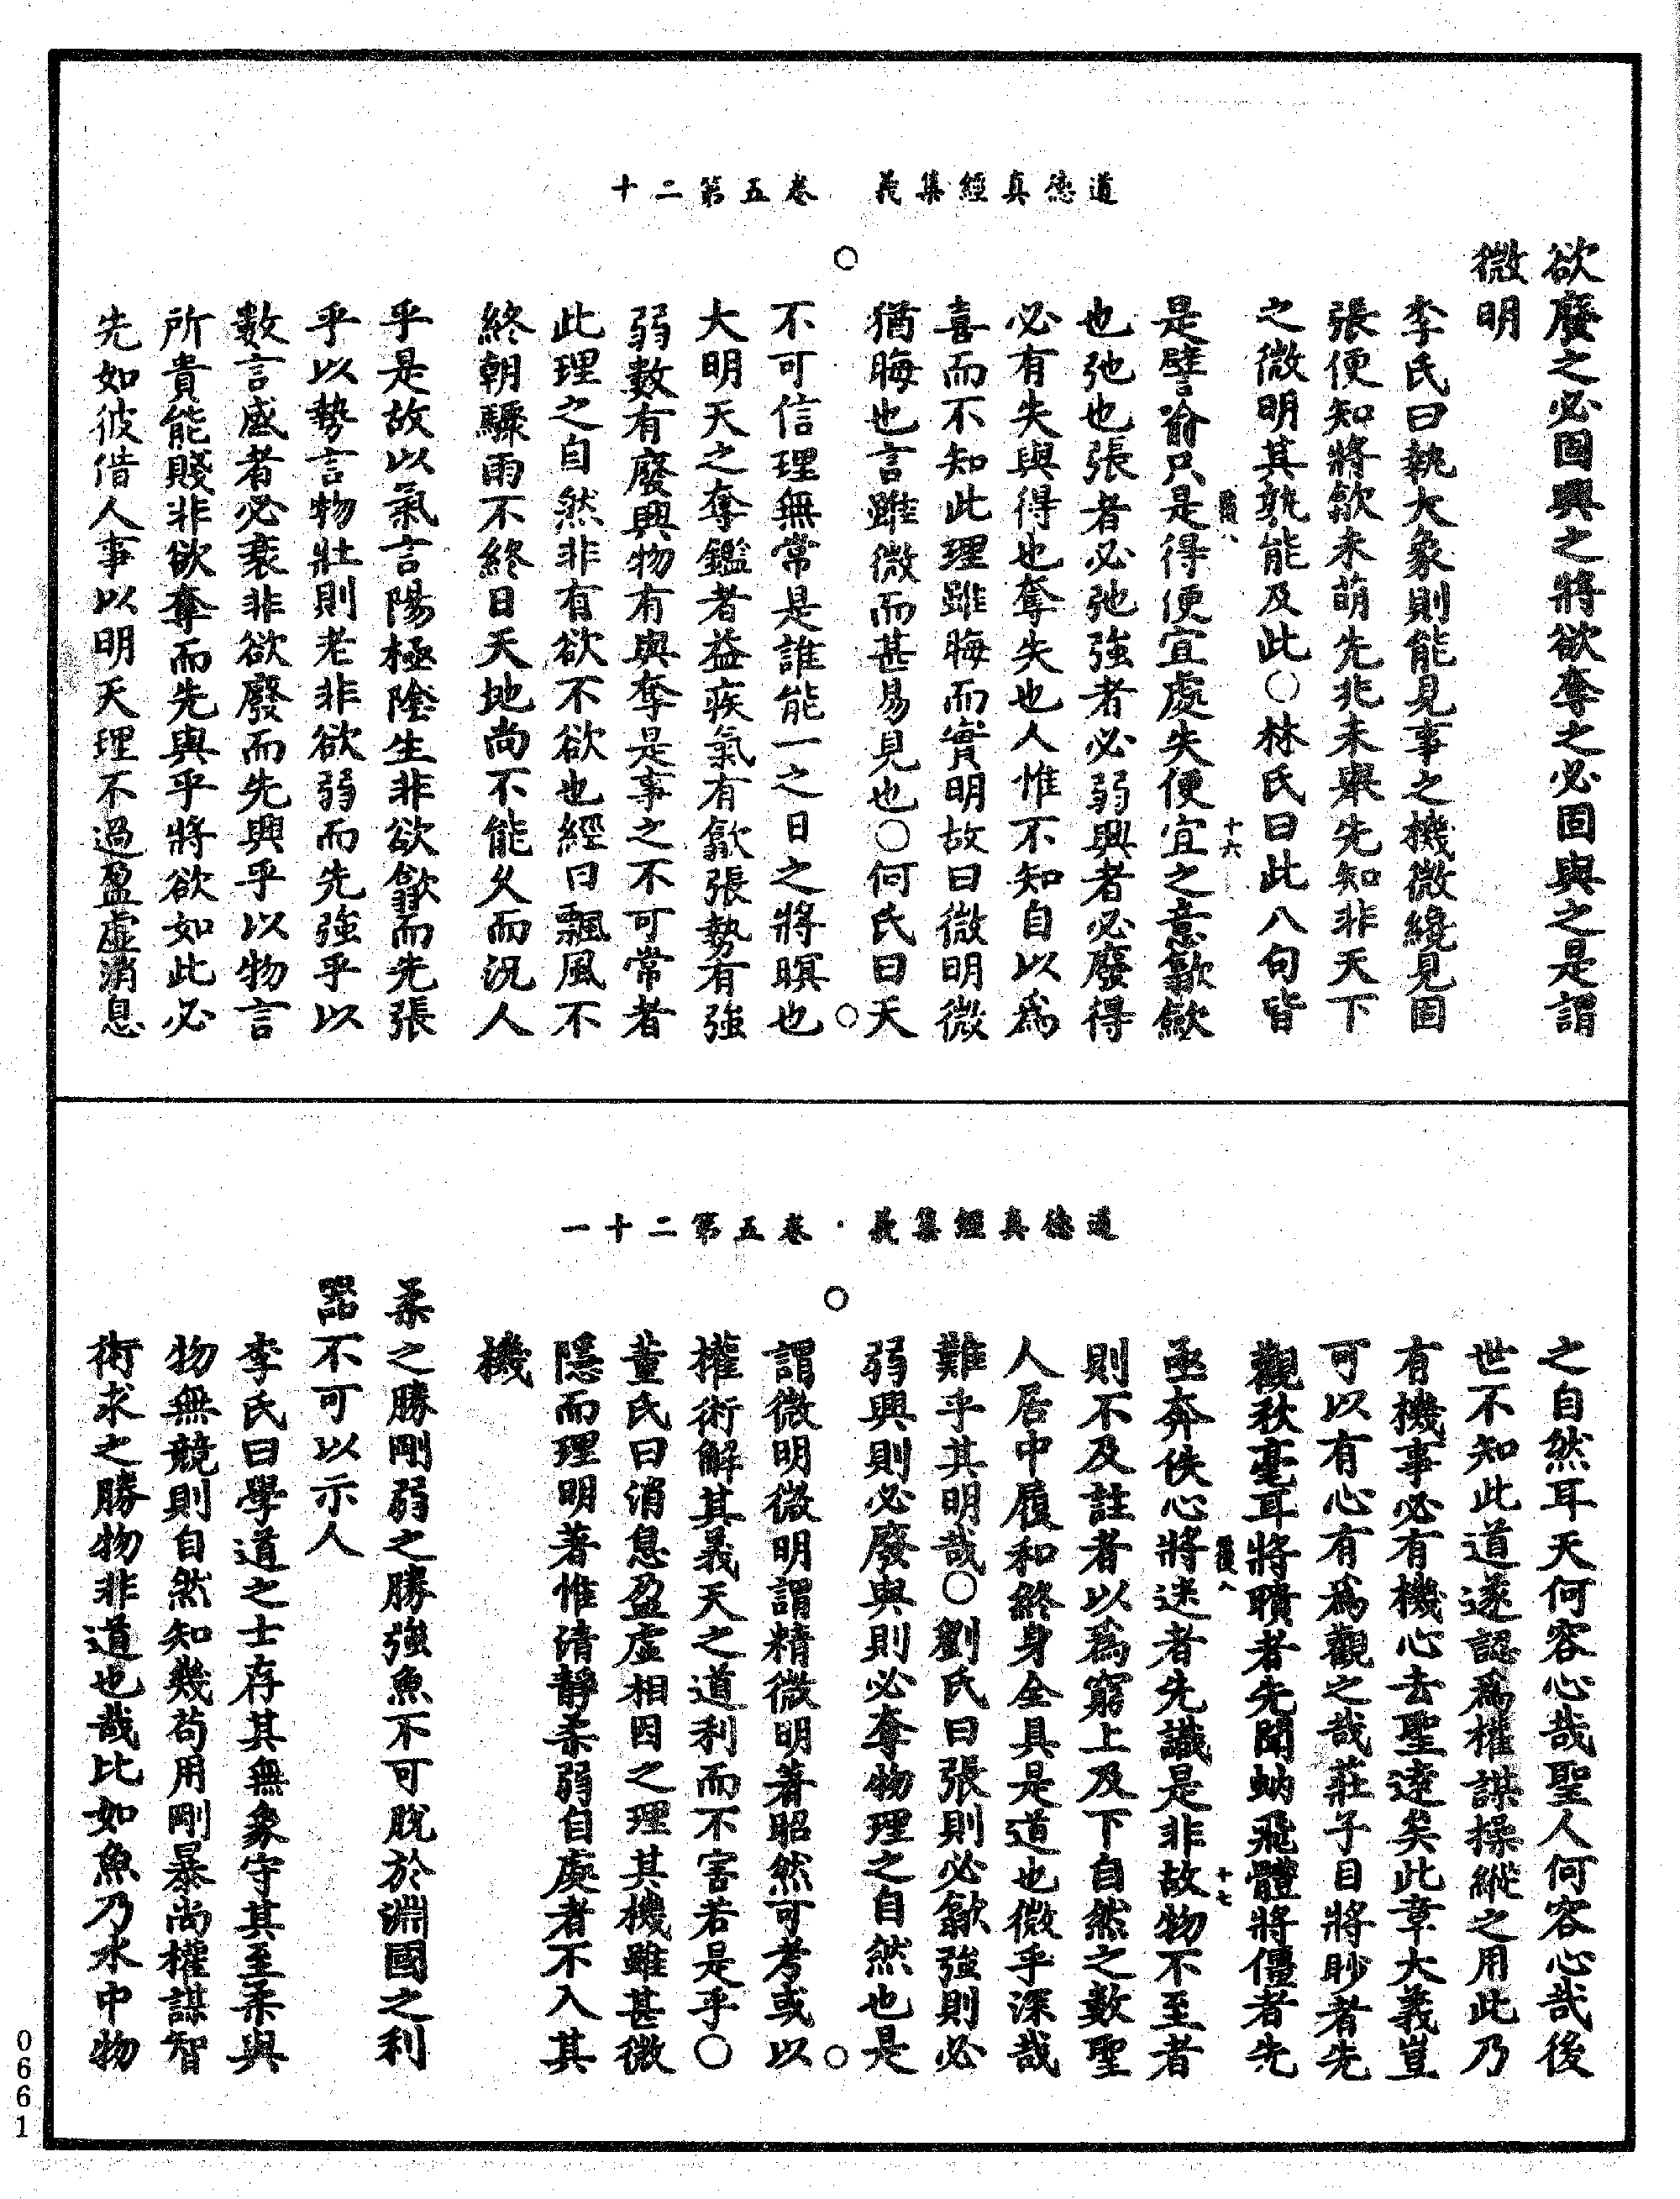 道德真經集義　卷五第二十
欲廢之必固興之將欲奪之必固與之是謂
微明
李氏曰執大象則能見事之機微纔見固
張便知將歙未萌先兆未舉先知非天下
之微明其孰能及此〇林氏曰此八句皆
是譬喻只是得便宜處失便宜之意歙歛
十六
也弛也張者必弛強者必弱興者必廢得
必有失與得也奪失也人惟不知自以爲
喜而不知此理雖晦而實明故曰微明微
猶晦也言雖微而甚易見也〇何氏曰天
不可信理無常是誰能一之日之將暝也
大明天之奪鑑者益疾氣有歙張勢有強
弱數有廢興物有與奪是事之不可常者
此理之自然非有欲不欲也經曰飄風不
終朝驟雨不終日天地尚不能久而況人
乎是故以氣言陽極陰生非欲歙而先張
乎以勢言物壯則老非欲弱而先強乎以
數言盛者必衰非欲廢而先興乎以物言
所貴能賤非欲奪而先與乎將欲如此必
先如彼借人事以明天理不過盈虛消息
道德真經集義·卷五第二十一
之自然耳天何容心哉聖人何容心哉後
世不知此道遂認爲權謀操縱之用此乃
有機事必有機心去聖遠矣此章大義豈
可以有心有爲觀之哉莊子目將眇者先
觀秋毫耳將聵者先聞蚋飛體將僵者先
亟奔佚心將迷者先識是非故物不至者
十七
則不及註者以爲窮上及下自然之數聖
人居中履和終身全具是道也微乎深哉
難乎其明哉〇劉氏曰張則必歙強則必
弱興則必廢與則必奪物理之自然也是
謂微明微明謂精微明著昭然可考或以
權術解其義天之道利而不害若是乎〇
董氏曰消息盈虛相因之理其機雖甚微
隱而理明著惟清靜柔弱自處者不入其
機
柔之勝剛弱之勝強魚不可脫於淵國之利
器不可以示人
李氏曰學道之士存其無象守其至柔與
物無競則自然知幾苟用剛暴尚權謀智
術求之勝物非道也哉比如魚乃水中物
0661